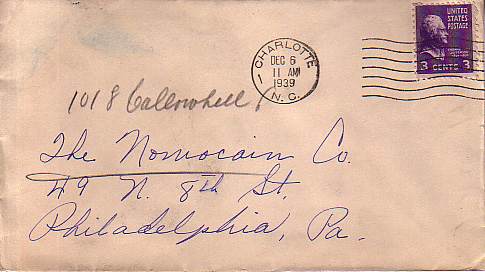 UNITED
STATES
POSTAGE
3 CENTS 3
CHARLOTTE
DEC 6
11 AM
1939
N. C.
1018 Callowhill
The Nomocain Co.
49 N. 8th St.
Philadelphia, Pa.